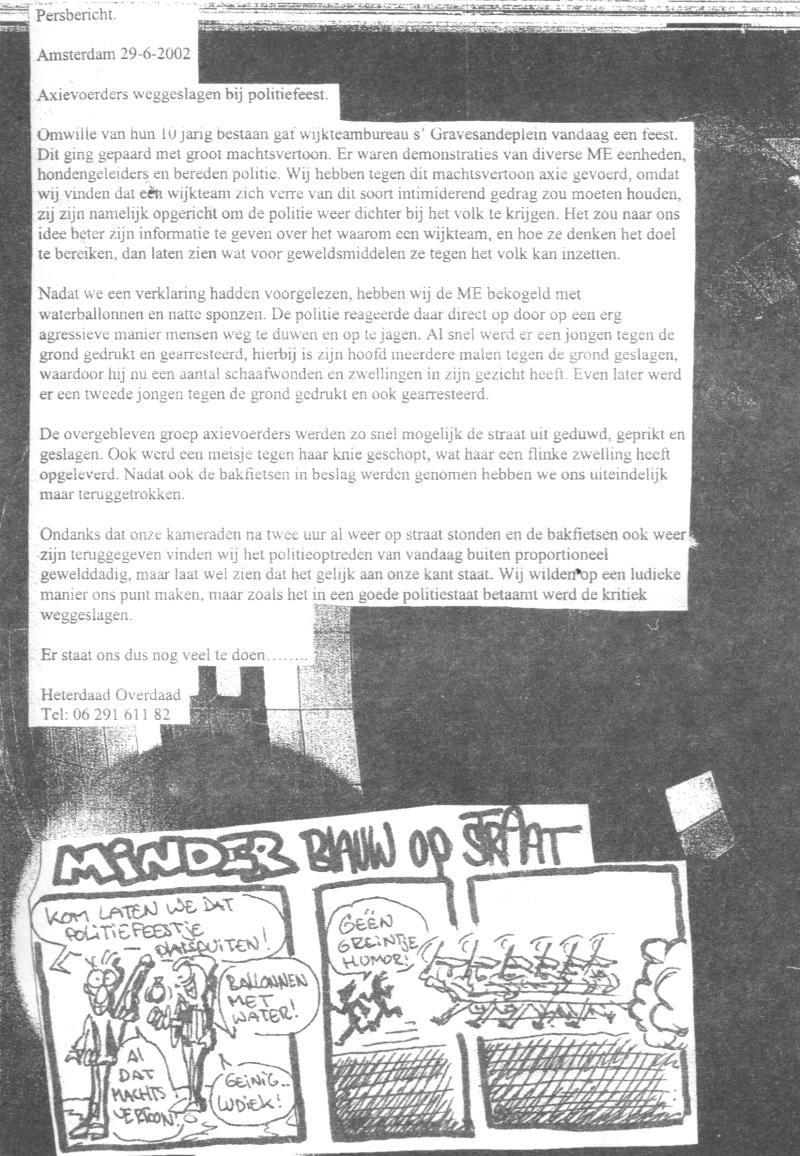 Persbericht.
Amsterdam 29-6-2002
Axievoerders weggeslagen bij politiefeest.
Omwille van hun 10 jarig bestaan gaf wijkteambureau s' Gravesandeplein vandaag een feest.
Dit ging gepaard met groot machtsvertoon. Er waren demonstraties van diverse ME eenheden,
hondengeleiders en bereden politie. Wij hebben tegen dit machtsvertoon axie gevoerd, omdat
wij vinden dat een wijkteam zich verre van dit soort intimiderend gedrag zou moeten houden,
zij zijn namelijk opgericht om de politie weer dichter bij het volk te krijgen. Het zou naar ons
idee beter zijn informatie te geven over het waarom een wijkteam, en hoe ze denken het doel
te bereiken, dan laten zien wat voor geweldsmiddelen ze tegen het volk kan inzetten.
Nadat we een verklaring hadden voorgelezen, hebben wij de ME bekogeld met
waterballonnen en natte sponzen. De politie reageerde daar direct op door op een erg
agressieve manier mensen weg te duwen en op te jagen. Al snel werd er een jongen tegen de
grond gedrukt en gearresteerd, hierbij is zijn hoofd meerdere malen tegen de grond geslagen,
waardoor hij nu een aantal schaafwonden en zwellingen in zijn gezicht heeft. Even later werd
er een tweede jongen tegen de grond gedrukt en ook gearresteerd.
De overgebleven groep axievoerders werden zo snel mogelijk de straat uit geduwd, geprikt en
geslagen. Ook werd een meisje tegen haar knie geschopt, wat haar een flinke zwelling heeft
opgeleverd. Nadat ook de bakfietsen in beslag werden genomen hebben we ons uiteindelijk
maar teruggetrokken.
Ondanks dat onze kameraden na twee uur al weer op straat stonden en de bakfietsen ook weer
zijn teruggegeven vinden wij het politieoptreden van vandaag buiten proportioneel
gewelddadig, maar laat wel zien dat het gelijk aan onze kant staat. Wij wilden op een ludieke
manier ons punt maken, maar zoals het in een goede politiestaat betaamt werd de kritiek
weggeslagen.
Er staat ons dus nog veel te doen........
Heterdaad Overdaad
Tel: 06 291 611 82
MINDER BLAUW OP STRAAT
KOM LATEN WE DAT
POLITIEFEESTJE
BALLONNEN
MET
WATER!
AL
DAT
MACHTS
VERTOON!
GEINIG..
LUDIEK!
GEEN
GREINTJE
HUMOR!